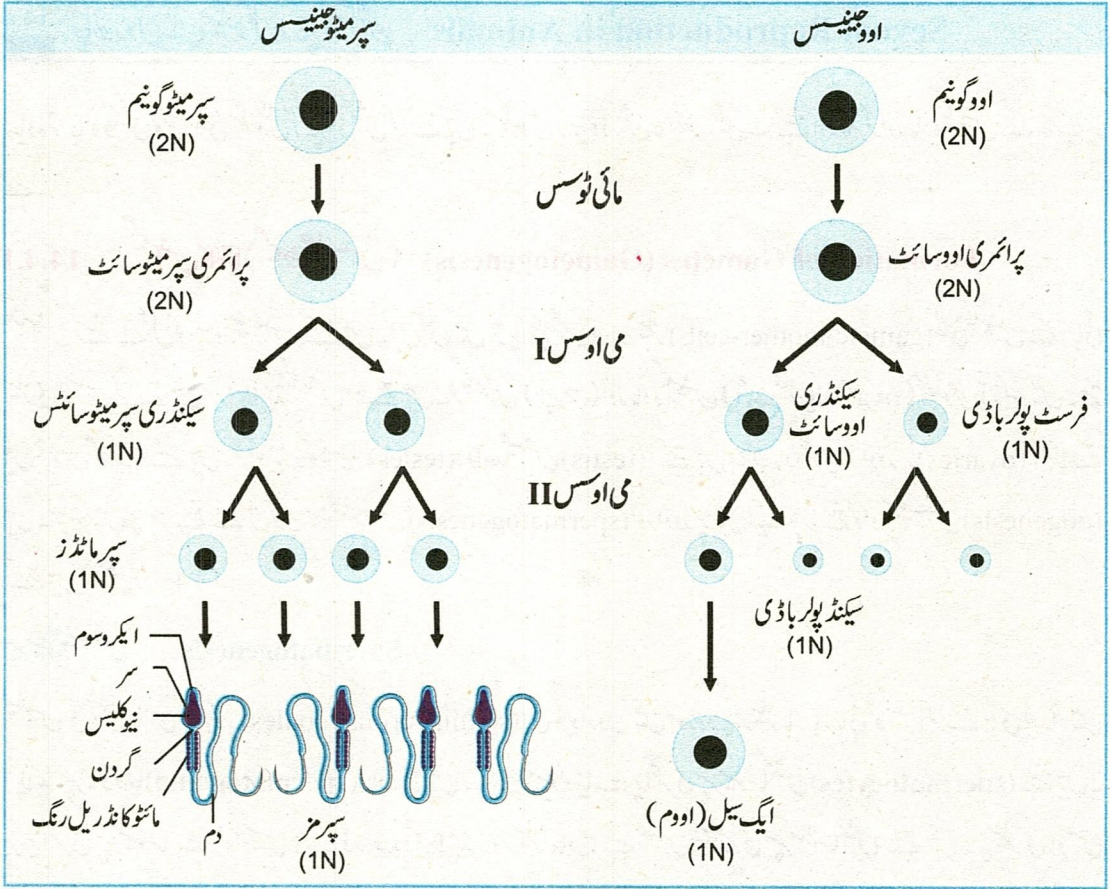 سپرمیٹوجینیسس
اووجینیسس
سپرمیٹوگونیم
(2N)
اووگونیم
(2N)
مائی ٹوسس
پرائمری سپرمیٹوسائٹ
(2N)
پرائمری اووسائٹ
(2N)
می اوسس I
سیکنڈری سپرمیٹوسائٹس
(1N)
سیکنڈری
اووسائٹ
(1N)
فرسٹ پولر باڈی
(1N)
می اوسس II
سپرماٹڈز
(1N)
سیکنڈ پولر باڈی
(1N)
ایکروسوم
سر
نیوکلیس
گردن
مائٹوکانڈریل رنگ
دم
سپرمز
(1N)
ایگ سیل (اووم)
(1N)